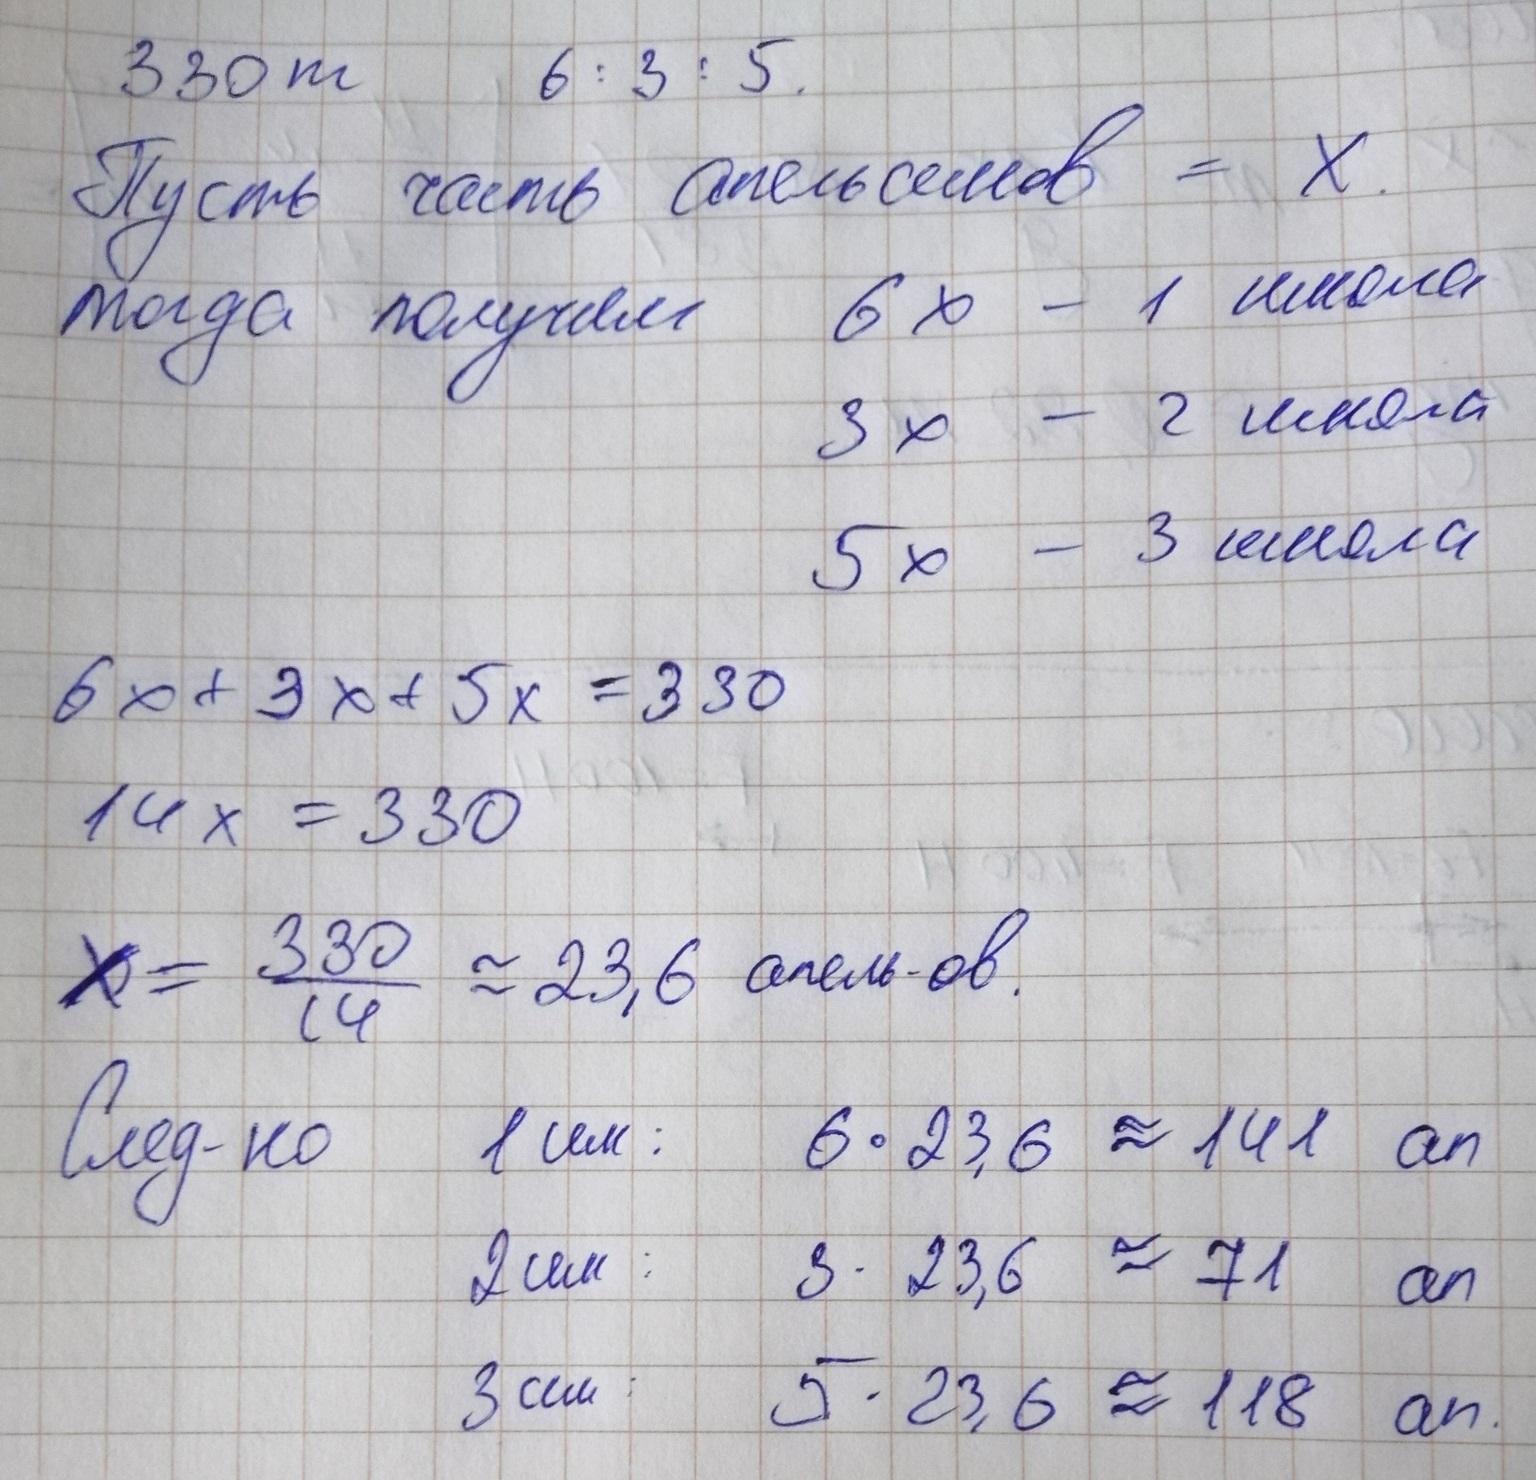 330 т 6 : 3 : 5.
Пусть часть апельсинов = X.
тогда получаем 6x – 1 школа
3x – 2 школа
5x – 3 школа
6x + 3x + 5x = 330
14x = 330
x = 330/14 ≈ 23,6 апель-ов.
След-но 1 шк: 6 · 23,6 ≈ 141 ап
2 шк: 3 · 23,6 ≈ 71 ап
3 шк: 5 · 23,6 ≈ 118 ап.